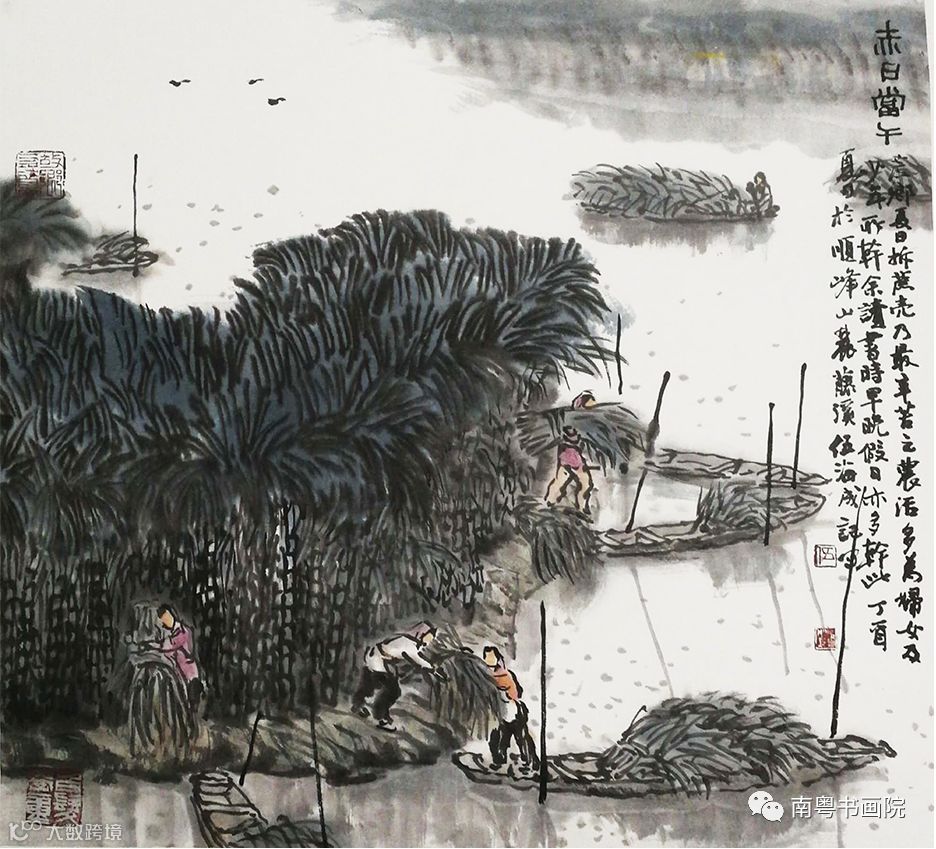 赤日當午
吾鄉夏日拆蔗壳乃最辛苦之農活多為婦女及
少年所幹余讀書時早晚假日亦多幹此丁酉
夏日於順峰山麓藤溪伍海成記
伍
南粤书画院
大数跨境